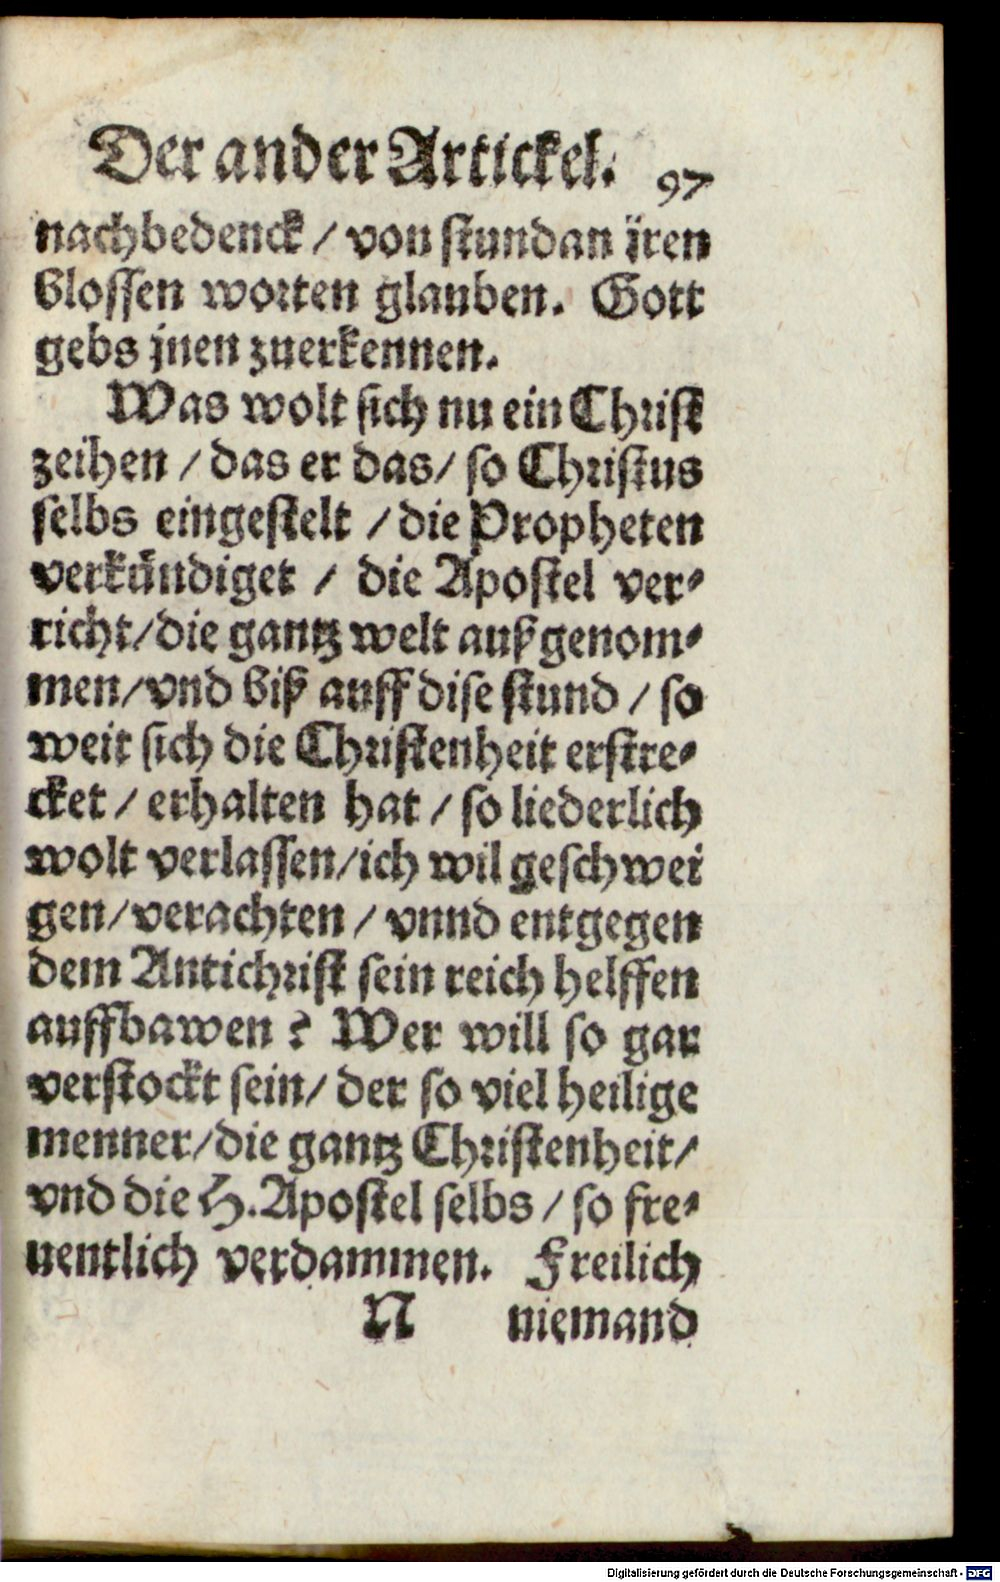 Der ander Artickel. 97
nachbedenck / von stundan jren
blossen worten glauben. Gott
gebs jnen zuerkennen.
Was wolt sich nu ein Christ
zeihen / das er das / so Christus
selbs eingestelt / die Propheten
verkündiget / die Apostel ver-
richt / die gantz welt außgenom-
men / vnd biß auff dise stund / so
weit sich die Christenheit erstre-
cket / erhalten hat / so liederlich
wolt verlassen / ich wil geschwei
gen / verachten / vnnd entgegen
dem Antichrist sein reich helffen
auffbawen? Wer will so gar
verstockt sein / der so viel heilige
menner / die gantz Christenheit /
vnd die H. Apostel selbs / so fre-
uentlich verdammen. Freilich
N niemand
Digitalisierung gefördert durch die Deutsche Forschungsgemeinschaft - DFG